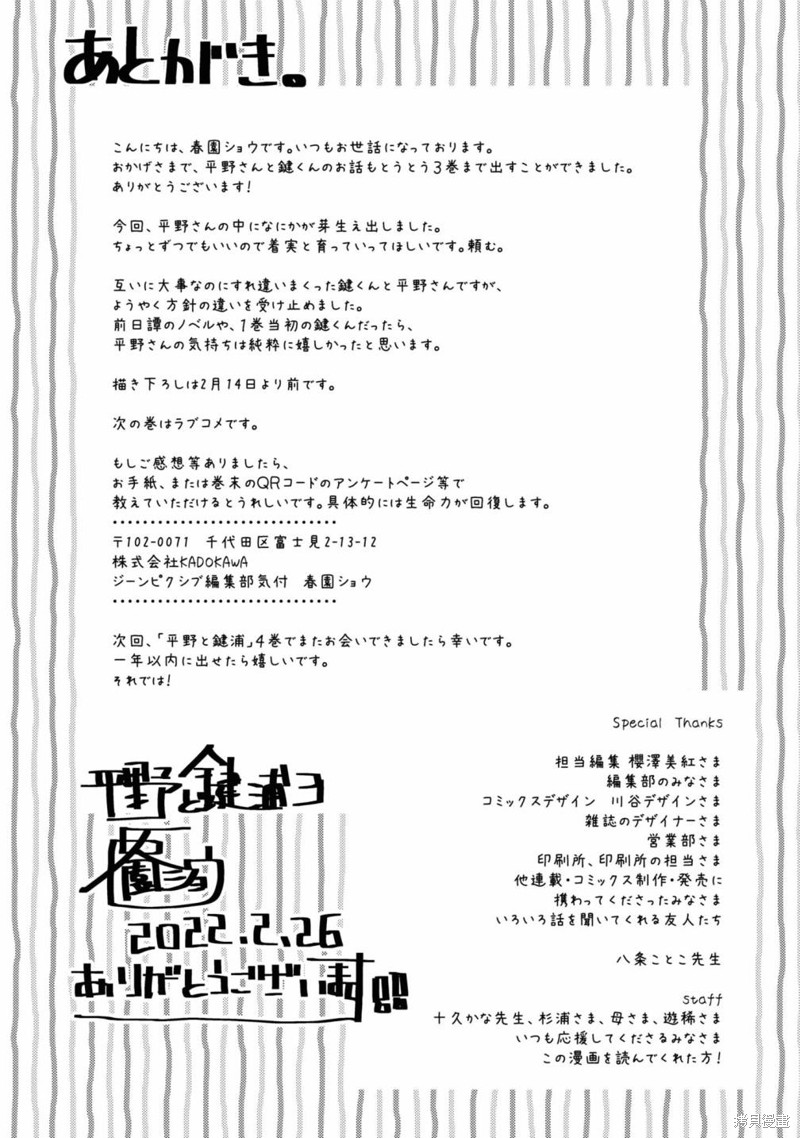 あとがき。
こんにちは、春園ショウです。いつもお世話になっております。
おかげさまで、平野さんと鍵くんのお話もとうとう3巻まで出すことができました。
ありがとうございます!
今回、平野さんの中になにかが芽生え出しました。
ちょっとずつでもいいので着実と育っていってほしいです。頼む。
互いに大事なのにすれ違いまくった鍵くんと平野さんですが、
ようやく方針の違いを受け止めました。
前日譚のノベルや、1巻当初の鍵くんだったら、
平野さんの気持ちは純粋に嬉しかったと思います。
描き下ろしは2月14日より前です。
次の巻はラブコメです。
もしご感想等ありましたら、
お手紙、または巻末のQRコードのアンケートページ等で
教えていただけるとうれしいです。具体的には生命力が回復します。
〒102-0071 千代田区富士見2-13-12
株式会社KADOKAWA
ジーンピクシブ編集部気付 春園ショウ
次回、「平野と鍵浦」4巻でまたお会いできましたら幸いです。
一年以内に出せたら嬉しいです。
それでは!
Special Thanks
担当編集 櫻澤美紅さま
編集部のみなさま
コミックスデザイン 川谷デザインさま
雑誌のデザイナーさま
営業部さま
印刷所、印刷所の担当さま
他連載・コミックス制作・発売に
携わってくださったみなさま
いろいろ話を聞いてくれる友人たち
八条ことこ先生
staff
十久かな先生、杉浦さま、母さま、遊稀さま
いつも応援してくださるみなさま
この漫画を読んでくれた方!
平野と鍵浦3
春園ショウ
2022.2.26
ありがとうございます!!
拷貝漫畫